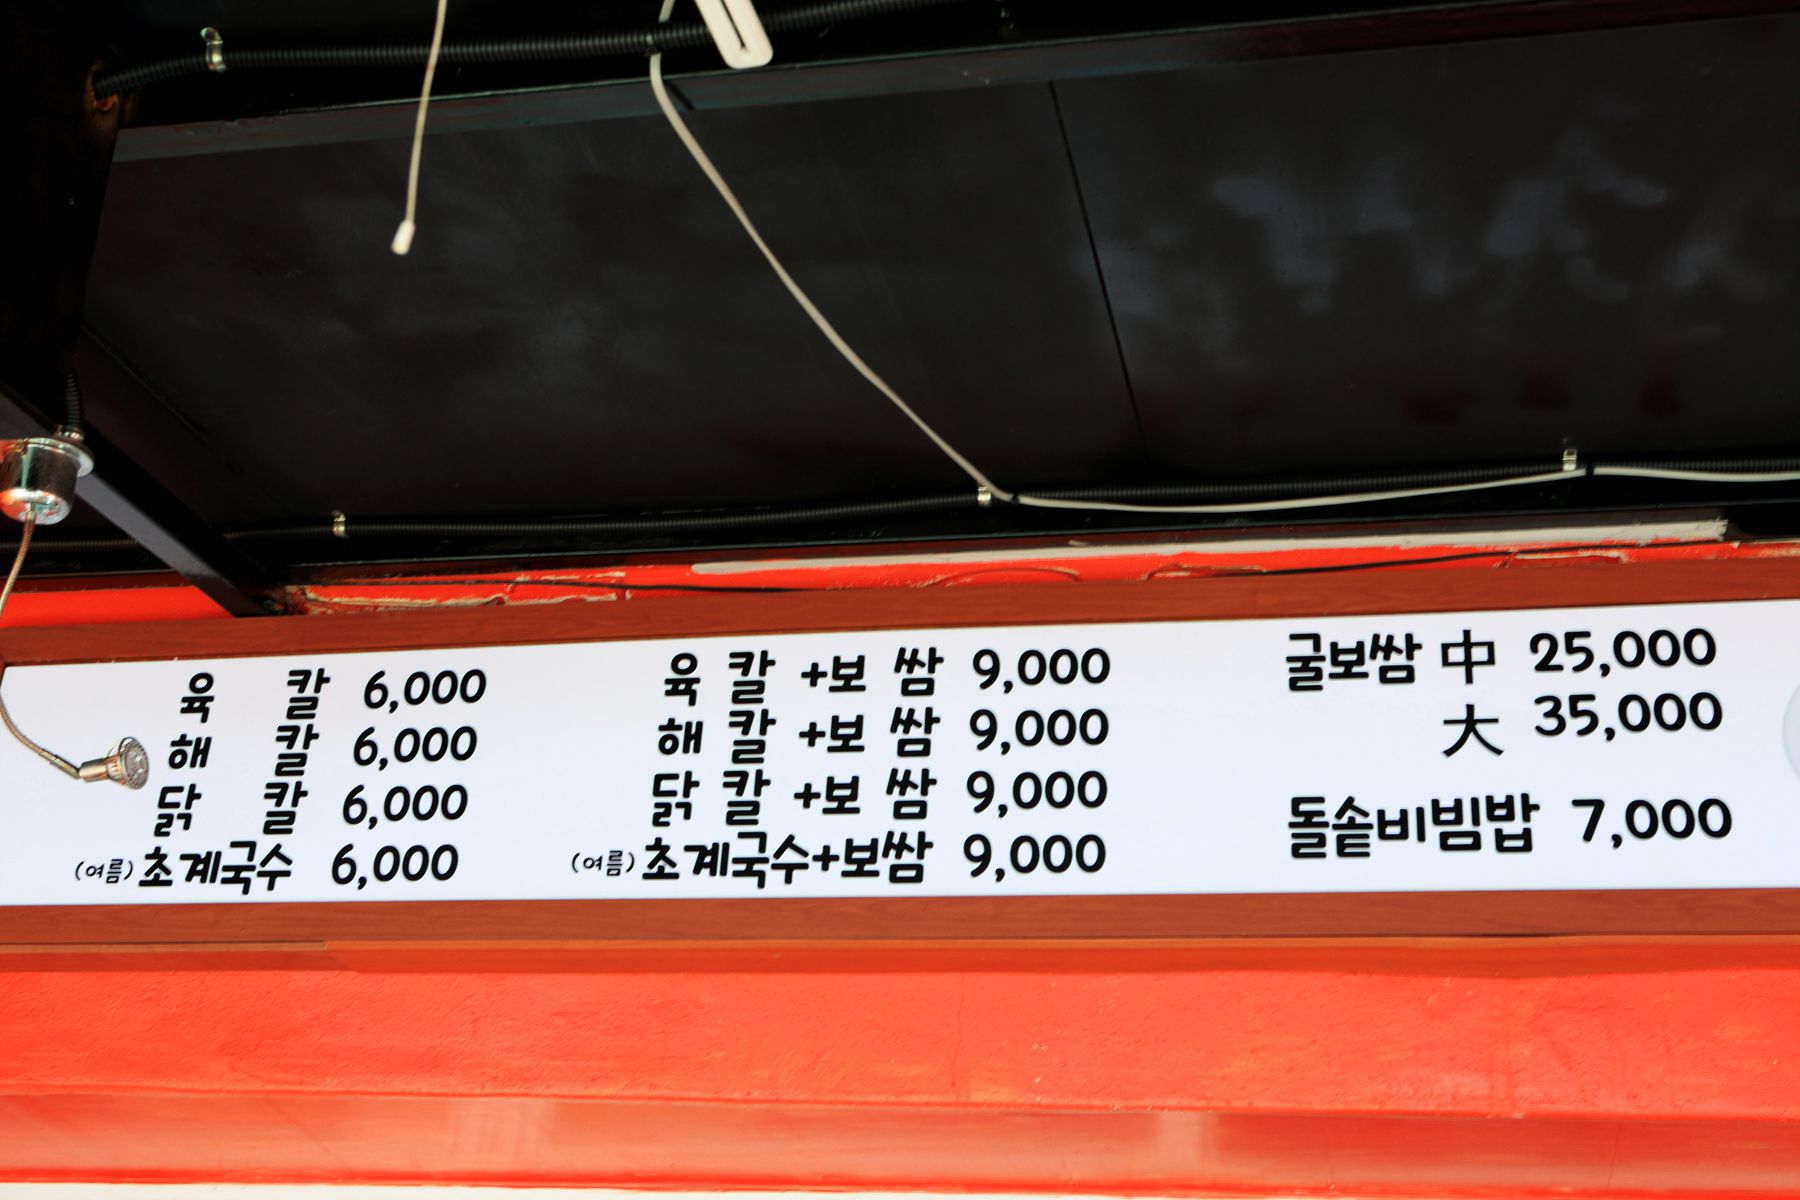 육 칼 6,000
해 칼 6,000
닭 칼 6,000
(여름) 초계국수 6,000
육 칼 +보 쌈 9,000
해 칼 +보 쌈 9,000
닭 칼 +보 쌈 9,000
(여름) 초계국수+보쌈 9,000
굴보쌈 中 25,000
大 35,000
돌솥비빔밥 7,000